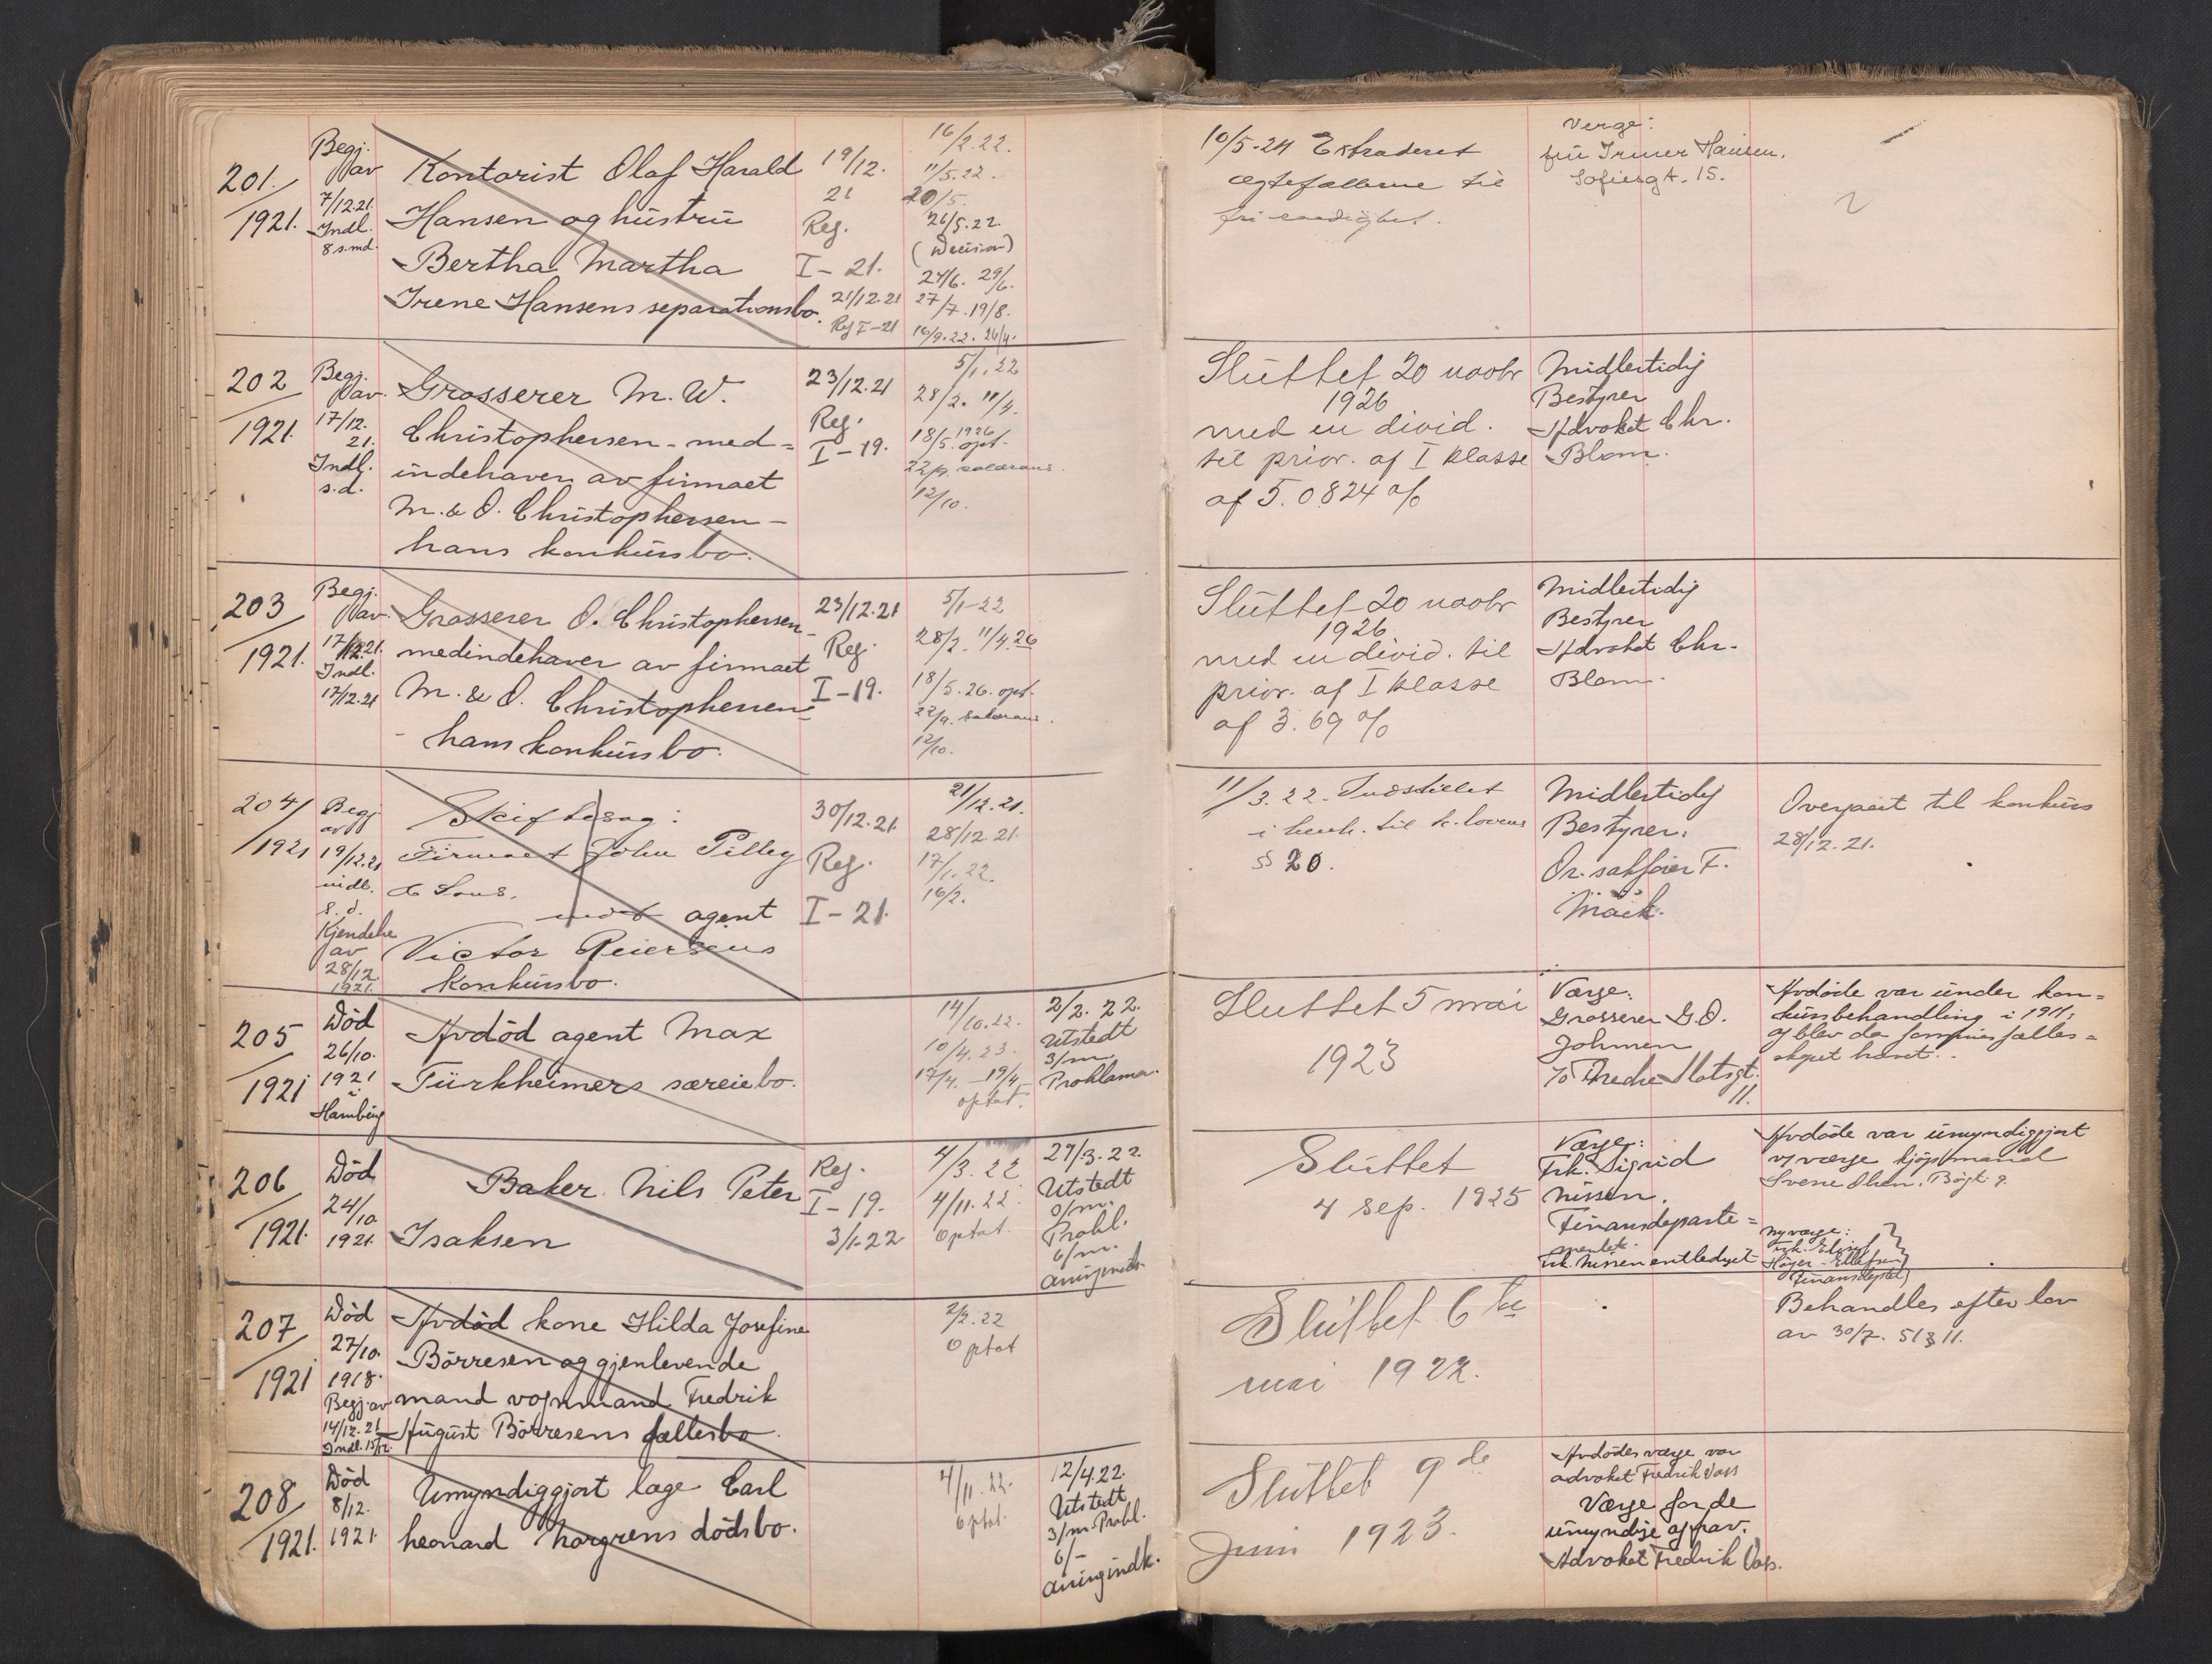 201/1921.
Begj.
av
7/12.21.
Indl.
8 s.md.
Kontorist Olaf Harald
Hansen og hustru
Bertha Martha
Irene Hansens separationsbo.
19/12.
21
Reg.
I-21.
21/12.21
Reg I-21
16/2.22.
11/5.22.
20/5.
26/5.22.
(Decision)
24/6. 29/6.
27/7. 19/8.
16/9.22. 26/4.
10/5-24 Extraderet
ægtefællerne til
fri raadighet.
Verge:
fru Irmer Hansen.
Sofiesgt. 15.
202/1921.
Begj.
av.
17/12.
21.
Indl.
s.d.
Grosserer M. W.
Christophersen - med=
indehaver av firmaet
M. & O. Christophersen -
hans konkursbo.
23/12.21
Reg.
I-19.
5/1.22
28/2. 11/4.
18/5. 1926 opt.
22/9.
12/10.
Sluttet 20 novbr
1926
med en divid.
til prior. af I klasse
af 5.0824 %
Midlertidig
Bestyrer
Advokat Chr.
Blom.
203/1921.
Begj.
av.
17/12.21.
Indl.
17/12.21
Grosserer O. Christophersen
medindehaver av firmaet
M. & O. Christophersen
- hans konkursbo.
23/12.21
Reg.
I-19.
5/1-22
28/2. 11/4.26
18/5.26. opt.
22/9.
12/10.
Sluttet 20 novbr
1926
med en divid. til
prior. af I klasse
af 3.69 %
Midlertidig
Bestyrer
Advokat Chr.
Blom.
204/1921
Begj.
av
19/12.21
indl.
s.d.
Kjendelse
av
28/12.
1921.
Skiftesag:
Firmaet John Pilley
& Sons.
mot agent
Victor Reiersens
konkursbo.
30/12.21.
Reg.
I-21.
21/12.21.
28/12.21.
17/1.22.
16/2.
11/3.22. Indstillet
i henh. til k.lovens
§ 20.
Midlertidig
Bestyrer:
Or. sakfører F.
Mack.
Overgaat til konkurs
28/12.21.
205/1921
Død
26/10.
1921
i
Hamburg
Avdød agent Max
Türkheimers særeiebo.
14/10.22.
10/4.23.
17/4. - 19/4
optat.
2/2.22.
Utstedt
3/m.
Proklama.
Sluttet 5 mai
1923
Værge:
Grosserer G.O.
Johnsen
Nedre Slotsgt.
11.
Avdøde var under kon=
kursbehandling i 1911,
og blev da formuesfælles=
skapet hævet.
206/1921.
Død
24/10.
1921.
Baker Nils Peter
Isaksen
Reg.
I-19.
3/1-22
4/3.22
4/11.22.
optat.
27/3.22.
Utstedt
3/m.
Prokl.
6/m.
Sluttet
4 sep. 1925
Værge:
Frk. Sigrid
Nissen.
Finansdeparte=
mentet.
Frk. Nissen entlediget
Avdøde var umyndiggjort
værge kjøpmand
ny værge:
Finansdeptet
207/1921
Død
27/10.
1918.
Begj. av
14/12.21
Indl. 15/12.
Avdød kone Hilda Josefine
Börresen og gjenlevende
mand vognmand Fredrik
August Börresens fællesbo.
2/2.22
Optat
Sluttet 6te
mai 1922.
Behandles efter lov
av 30/7. 51 § 11.
208/1921.
Død
8/12.
1921.
Umyndiggjort læge Carl
Leonard Norgrens dödsbo.
4/11.22.
optat.
12/4.22.
Utstedt
3/m. Prokl.
6/-
arvingindk.
Sluttet 9de
Juni 1923.
Avdødes værge var
advokat Fredrik Vass
Værge for de
umyndige og frav.
Advokat Fredrik Vass.